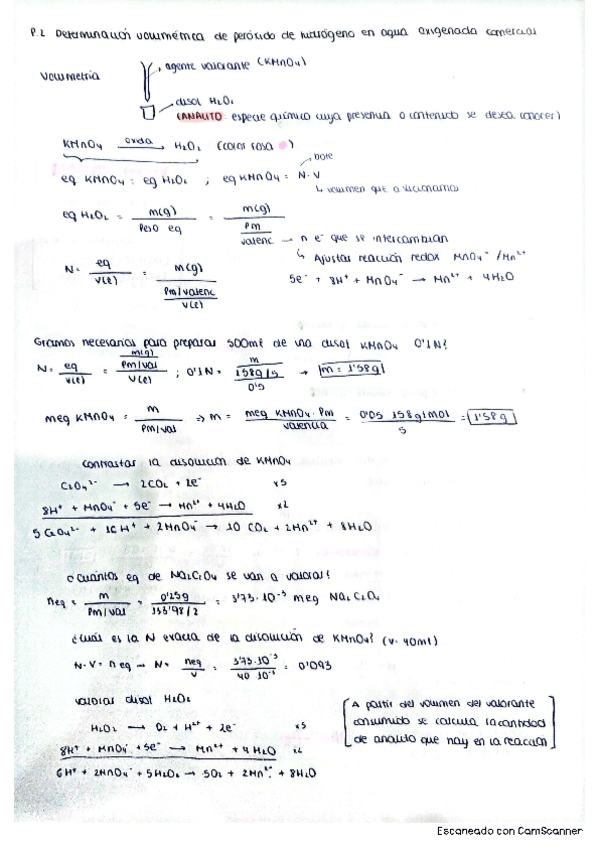 P.2 Determinación volumétrica de peróxido de hidrógeno en agua oxigenada comercial
Volumetría
agente valorante (KMnO₄)
disol H₂O₂
(ANALITO: especie químico cuya presencia o contenido se desea conocer)
KMnO₄ oxida → H₂O₂ (color rosa)
eq KMnO₄ = eq H₂O₂ ; eq KMnO₄ = N·V
↳ volumen que adicionamos
eq H₂O₂ = m(g) / Peso eq = m(g) / Pm/valenc → n e⁻ que se intercambian
↳ Ajustar reacción redox MnO₄⁻/Mn²⁺
N = eq / V(l) = m(g) / Pm/valenc / V(l)
5e⁻ + 8H⁺ + MnO₄⁻ → Mn²⁺ + 4H₂O
Gramos necesarios para preparar 500ml de una disol KMnO₄ 0'1N?
N = eq / V(l) = m(g) / Pm/val / V(l) ; 0'1N = m / 158g/5 / 0'5 → m = 1'58g
meq KMnO₄ = m / Pm/val ⇒ m = meq KMnO₄ · Pm / valencia = 0'05 158g/mol / 5 = 1'58g
Contrastar la disolución de KMnO₄
C₂O₄²⁻ → 2CO₂ + 2e⁻ x5
8H⁺ + MnO₄⁻ + 5e⁻ → Mn²⁺ + 4H₂O x2
5C₂O₄²⁻ + 16H⁺ + 2MnO₄⁻ → 10 CO₂ + 2Mn²⁺ + 8H₂O
¿Cuántos eq de Na₂C₂O₄ se van a valorar?
neq = m / Pm/val = 0'25g / 133'98/2 = 3'73·10⁻³ meq Na₂C₂O₄
¿Cuál es la N exacta de la disolución de KMnO₄? (V= 40ml)
N·V = neq → N = neq / V = 3'73·10⁻³ / 40·10⁻³ = 0'093
Valorar disol H₂O₂
[A partir del volumen del valorante
consumido se calcula la cantidad
de analito que hay en la reacción]
H₂O₂ → O₂ + H²⁺ + 2e⁻ x5
8H⁺ + MnO₄⁻ + 5e⁻ → Mn²⁺ + 4H₂O x2
6H⁺ + 2MnO₄⁻ + 5H₂O₂ → 5O₂ + 2Mn²⁺ + 8H₂O
Escaneado con CamScanner